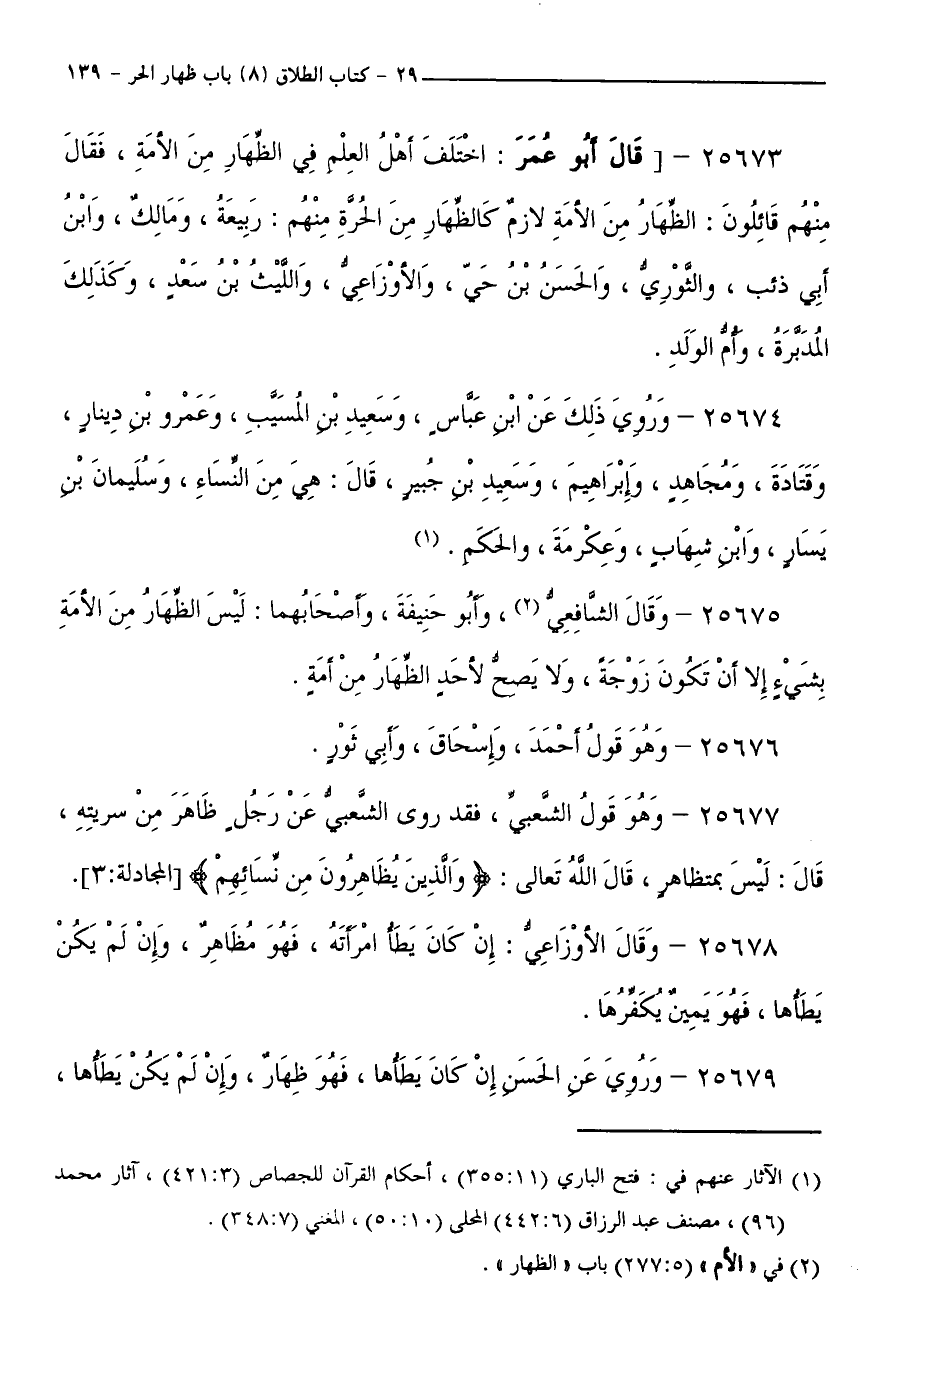 ٢٩ - كتاب الطلاق (٨) باب ظهار الحر - ١٣٩
٢٥٦٧٣ - [ قَالَ أَبُو عُمَرَ : اخْتَلَفَ أَهْلُ العِلْمِ فِي الظِّهَارِ مِنَ الأَمَةِ ، فَقَالَ
مِنْهُم قَائِلُونَ : الظِّهَارُ مِنَ الأَمَةِ لازمٌ كَالظِّهَارِ مِنَ الحُرَّةِ مِنْهُم : رَبِيعَةُ ، وَمَالِكٌ ، وَابْنُ
أَبِي ذئب ، والثَّوْرِيُّ ، وَالحَسَنُ بْنُ حَيّ ، وَالأوْزَاعِيُّ ، وَاللَّيْثُ بْنُ سَعْدٍ ، وَكَذَلِكَ
المُدَبَّرَةُ ، وَأُمُّ الوَلَدِ .
٢٥٦٧٤ - وَرُوِيَ ذَلِكَ عَنْ ابْنِ عَبَّاسٍ ، وَسَعِيدِ بْنِ المُسَيَّبِ ، وَعَمْرو بْنِ دِينارٍ ،
وَقَتَادَةَ ، وَمُجَاهِدٍ ، وَإِبْرَاهِيمَ ، وَسَعِيدِ بْنِ جُبيرٍ ، قَالَ : هِيَ مِنَ النِّسَاءِ ، وَسُلَيمانَ بْنِ
يَسَارٍ ، وَابْنِ شِهَابٍ ، وَعِكْرِمَةَ ، والحَكَمِ . (١)
٢٥٦٧٥ - وَقَالَ الشَّافِعِيُّ (٢) ، وَأَبُو حَنِيفَةَ ، وَأَصْحَابُهما : لَيْسَ الظِّهَارُ مِنَ الأَمَةِ
بِشَيْءٍ إِلا أَنْ تَكُونَ زَوْجَةً ، وَلا يَصحُّ لأحَدٍ الظِّهَارُ مِنْ أَمَةٍ .
٢٥٦٧٦ - وَهُوَ قَولُ أَحْمَدَ ، وَإِسْحَاقَ ، وَأَبِي ثَوْرٍ .
٢٥٦٧٧ - وَهُوَ قَولُ الشَّعبيِّ ، فقد روى الشَّعبيُّ عَنْ رَجُلٍ ظَاهَرَ مِنْ سريتِهِ ،
قَالَ : لَيْسَ بمتظاهرٍ ، قَالَ اللَّهُ تَعالى : ﴿ وَالَّذِينَ يُظَاهِرُونَ مِن نِّسَائِهِمْ ﴾ [المجادلة:٣].
٢٥٦٧٨ - وَقَالَ الأوْزَاعِيُّ : إِنْ كَانَ يَطَأُ امْرَأَتَهُ ، فَهُوَ مُظَاهِرٌ ، وَإِنْ لَمْ يَكُنْ
يَطَأُها ، فَهُوَ يَمِينٌ يُكَفِّرُهَا .
٢٥٦٧٩ - وَرُوِيَ عَنِ الحَسَنِ إِنْ كَانَ يَطَأُها ، فَهُوَ ظِهَارٌ ، وَإِنْ لَمْ يَكُنْ يَطَأُها ،
(١) الآثار عنهم في : فتح الباري (٣٥٥:١١) ، أحكام القرآن للجصاص (٤٢١:٣) ، آثار محمد
(٩٦) ، مصنف عبد الرزاق (٤٤٢:٦) المحلى (٥٠:١٠) ، المغني (٣٤٨:٧) .
(٢) في « الأم » (٢٧٧:٥) باب « الظهار » .